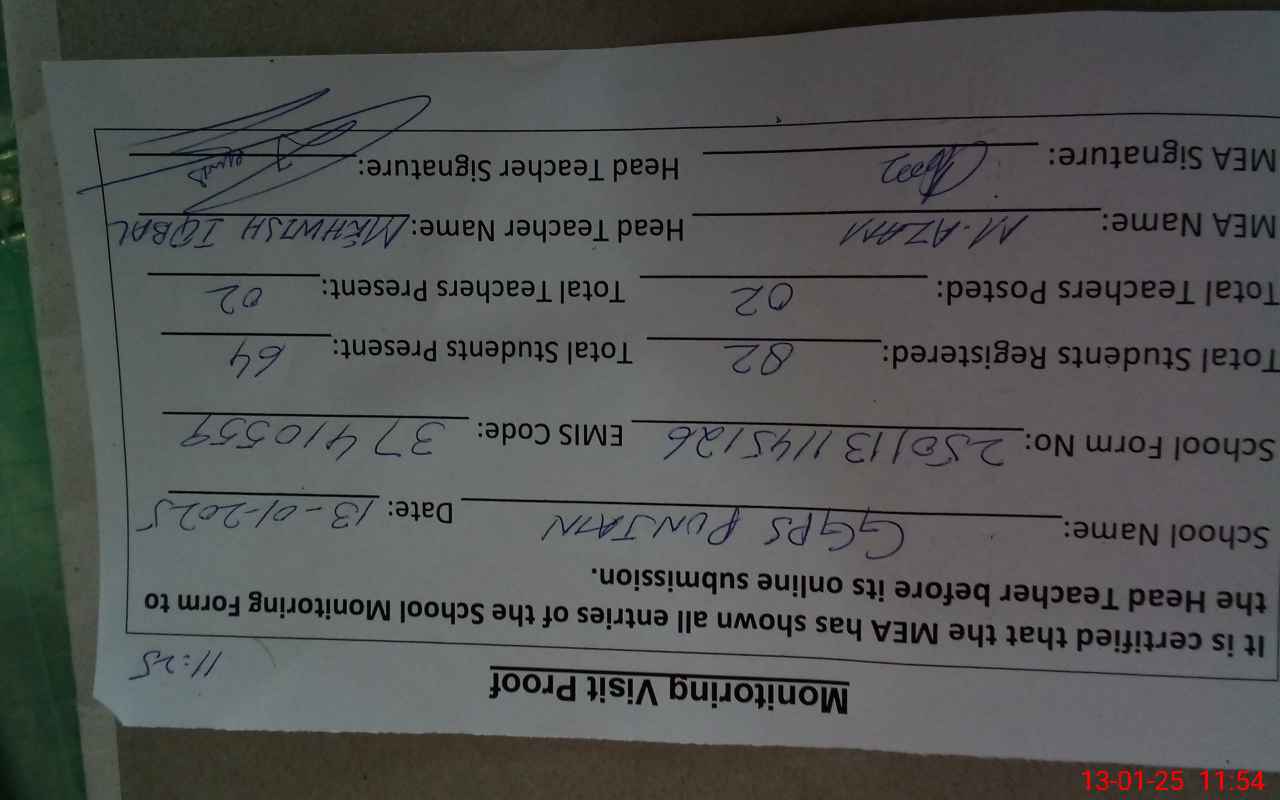 Monitoring Visit Proof
11:25
It is certified that the MEA has shown all entries of the School Monitoring Form to
the Head Teacher before its online submission.
School Name: GGPS PUNJAIN Date: 13-01-2025
School Form No: 2501131145126 EMIS Code: 37410559
Total Students Registered: 82 Total Students Present: 64
Total Teachers Posted: 02 Total Teachers Present: 02
MEA Name: M. AZAM Head Teacher Name: MEHWISH IQBAL
MEA Signature: Head Teacher Signature:
13-01-25 11:54